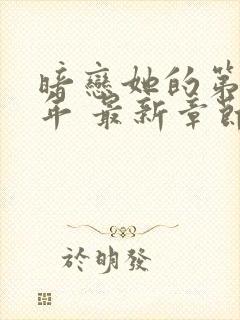 暗戀她的第
年 最新章節
於明發